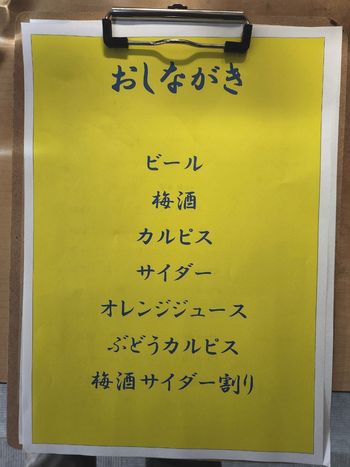 おしながき
ビール
梅酒
カルピス
サイダー
オレンジジュース
ぶどうカルピス
梅酒サイダー割り